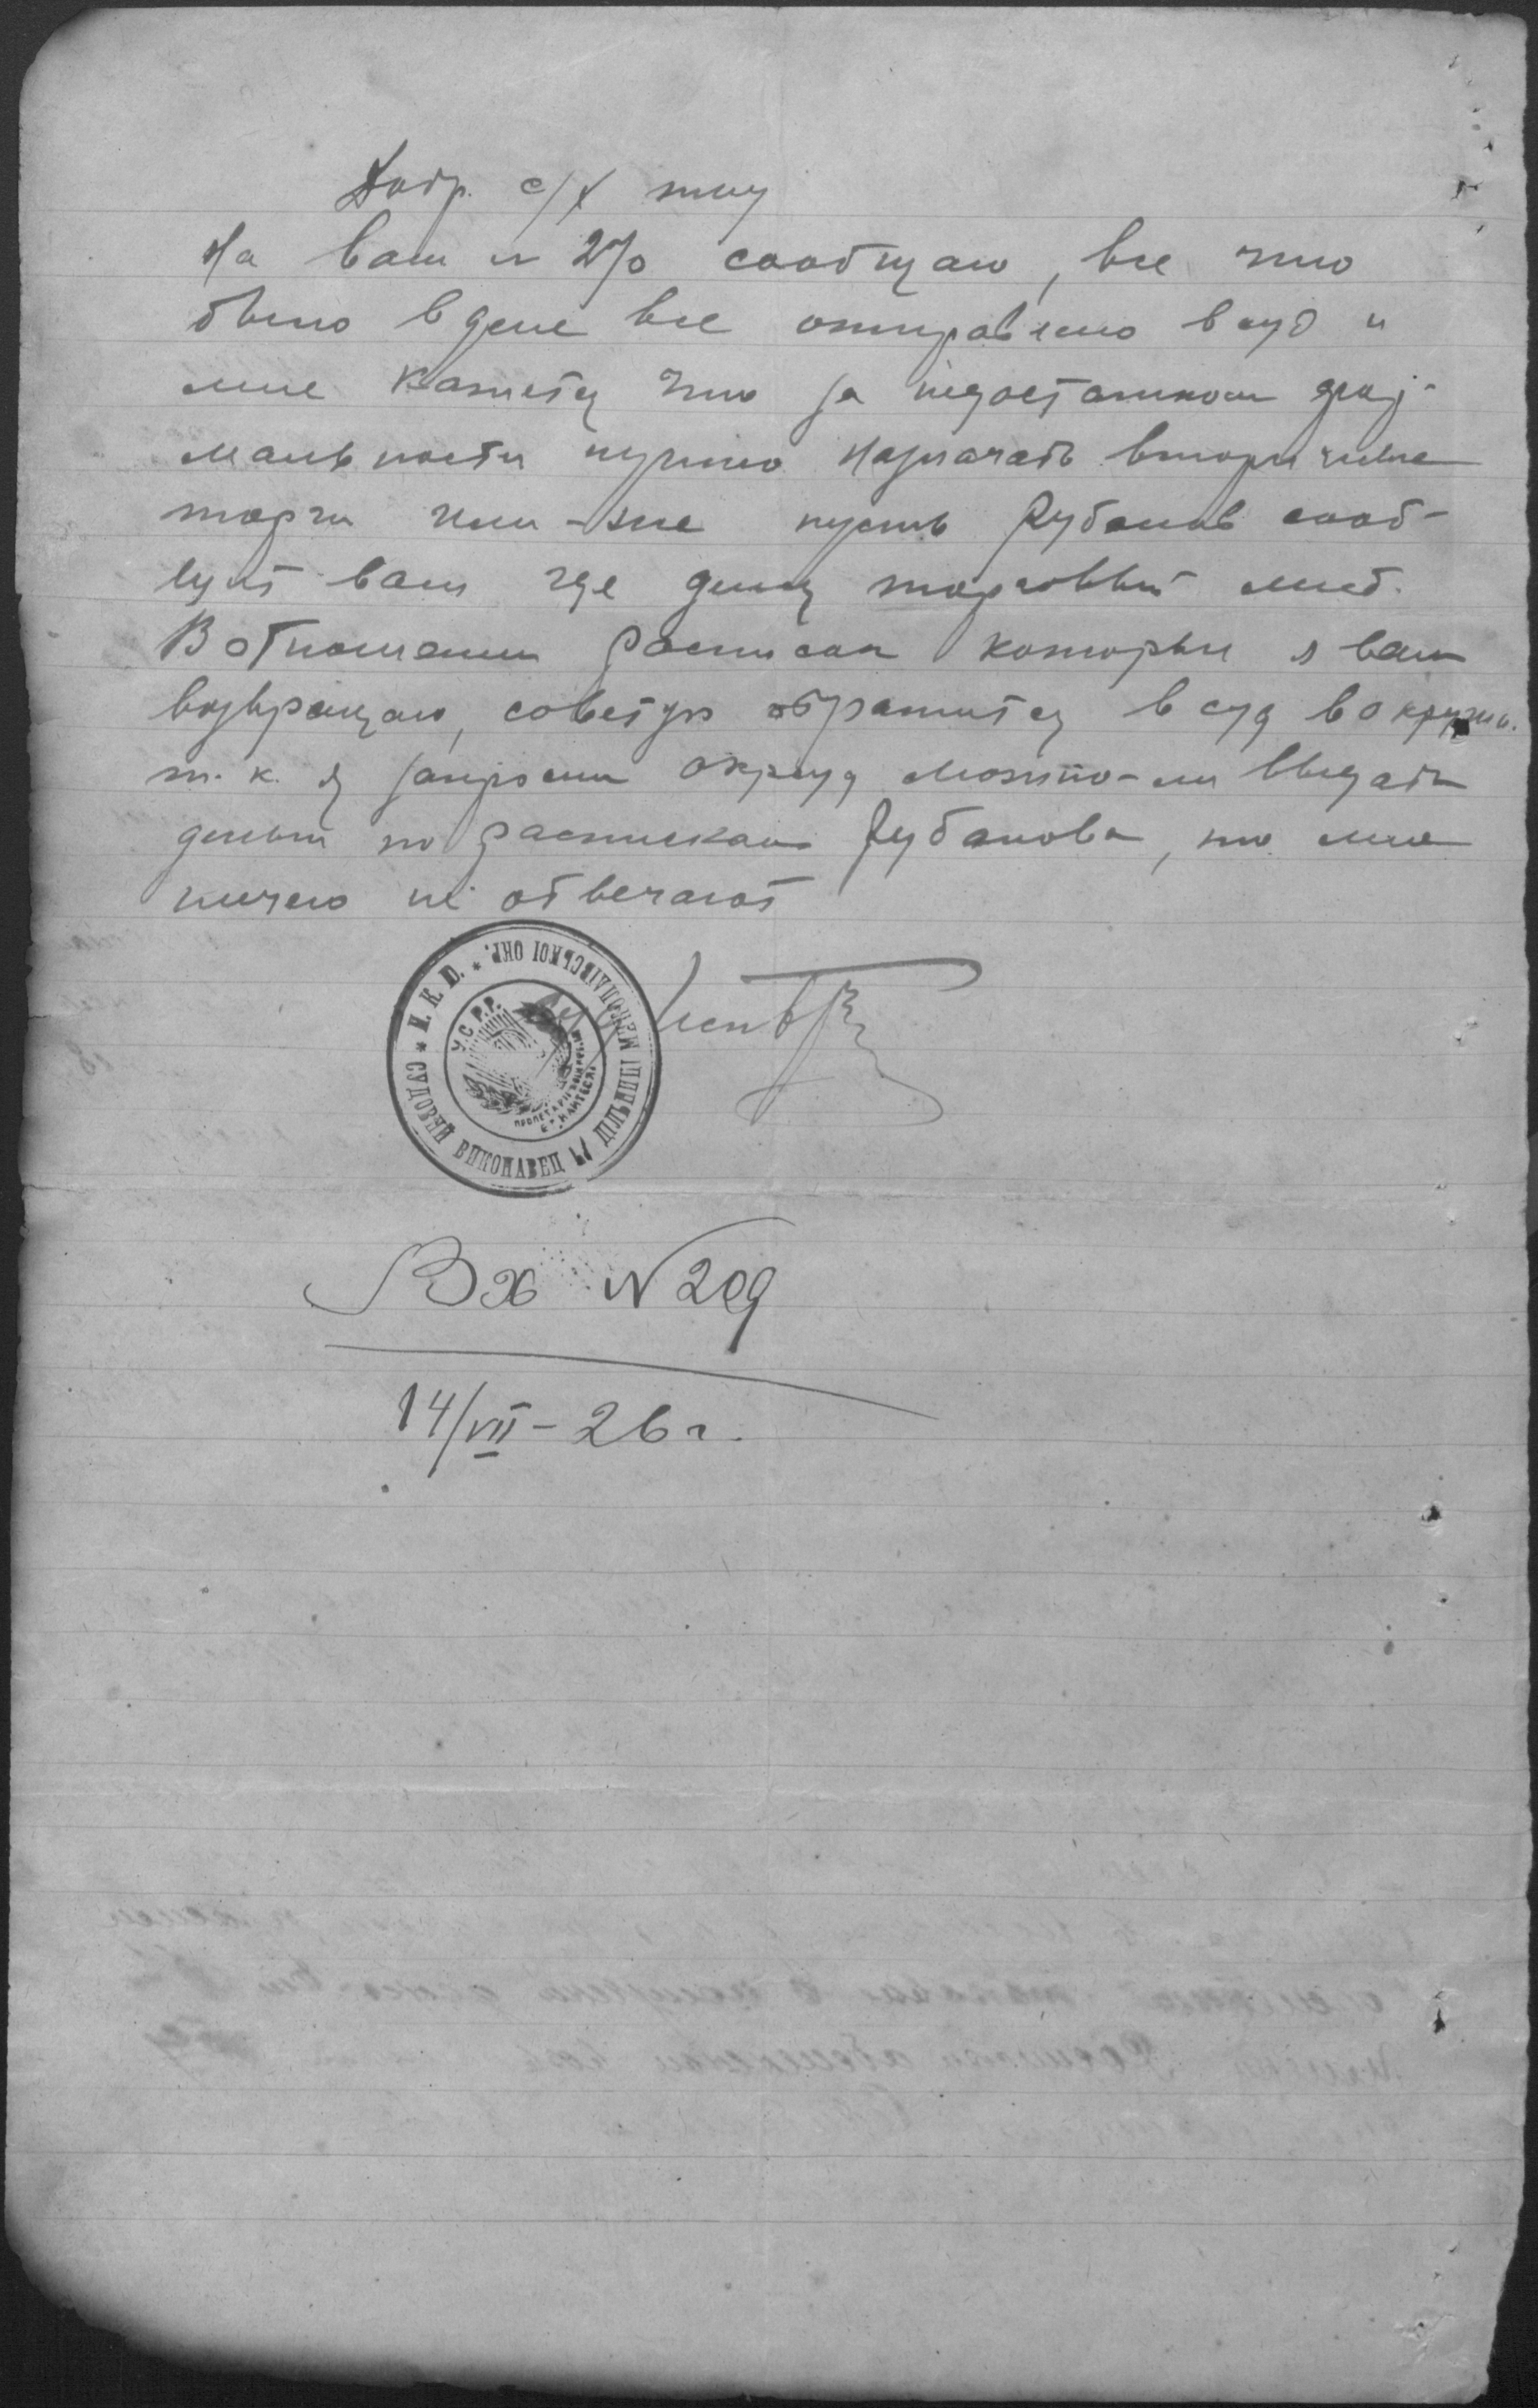 Добр. с/х т-ву
На ваш № 270 сообщаю, все что
было в деле все отправлено в суд и
мне кажется что за недостатком
нужно назначать вторичные
торги или-же пусть Рубанов сооб-
щит вам где делся торговый лист.
В отношении расписок которые я вам
возвращаю, советую обратится в суд в округ.
т. к. я запросил окрсуд можно-ли выдать
деньги по распискам Рубанова, но мне
ничего не отвечают
* Н. К. Ю. * СУДОВИЙ ВИКОНАВЕЦ 17 ДІЛЬНИЦІ МИКОЛАЇВСЬКОЇ ОКР.
У.С.Р.Р.
Вх № 209
14/VII – 26 г.